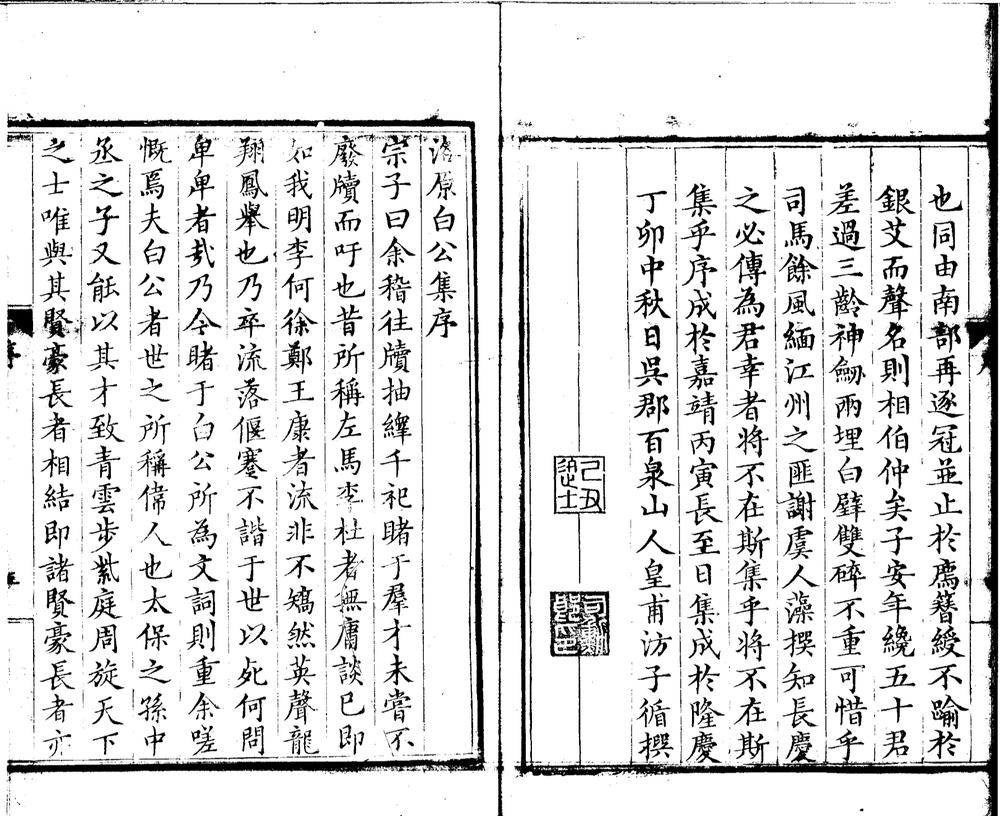 也同由南部再逐冠並止於廌簪綬不踰於
銀艾而聲名則相伯仲矣子安年纔五十君
差過三齡神劒兩埋白璧雙碎不重可惜乎
司馬餘風緬江州之匪謝虞人藻撰知長慶
之必傳為君幸者將不在斯集乎將不在斯
集乎序成於嘉靖丙寅長至日集成於隆慶
丁卯中秋日吳郡百泉山人皇甫汸子循撰
己丑進士
洛原白公集序
宗子曰余稽往牘抽繹千祀睹于羣才未嘗不
廢牘而吁也昔所稱左馬李杜者無庸談已即
如我明李何徐鄭王康者流非不矯然英聲龍
翔鳳舉也乃卒流落偃蹇不諧于世以死何問
卑卑者哉乃今睹于白公所為文詞則重余嗟
慨焉夫白公者世之所稱偉人也太保之孫中
丞之子又能以其才致青雲步紫庭周旋天下
之士唯與其賢豪長者相結即諸賢豪長者亦